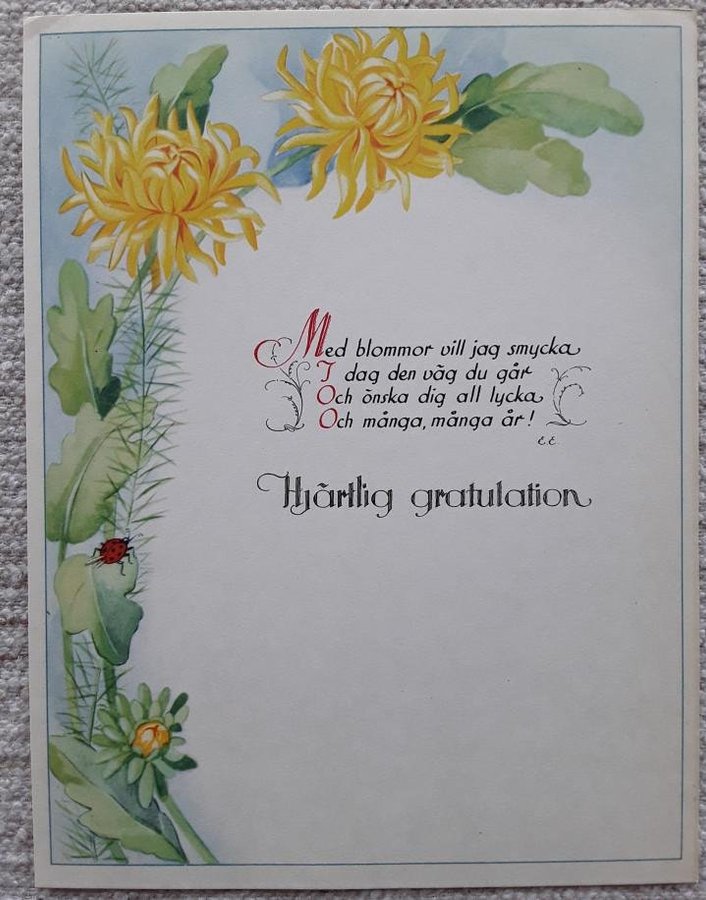 Med blommor vill jag smycka
I dag den väg du går
Och önska dig all lycka
Och många, många år!
E.E.
Hjärtlig gratulation